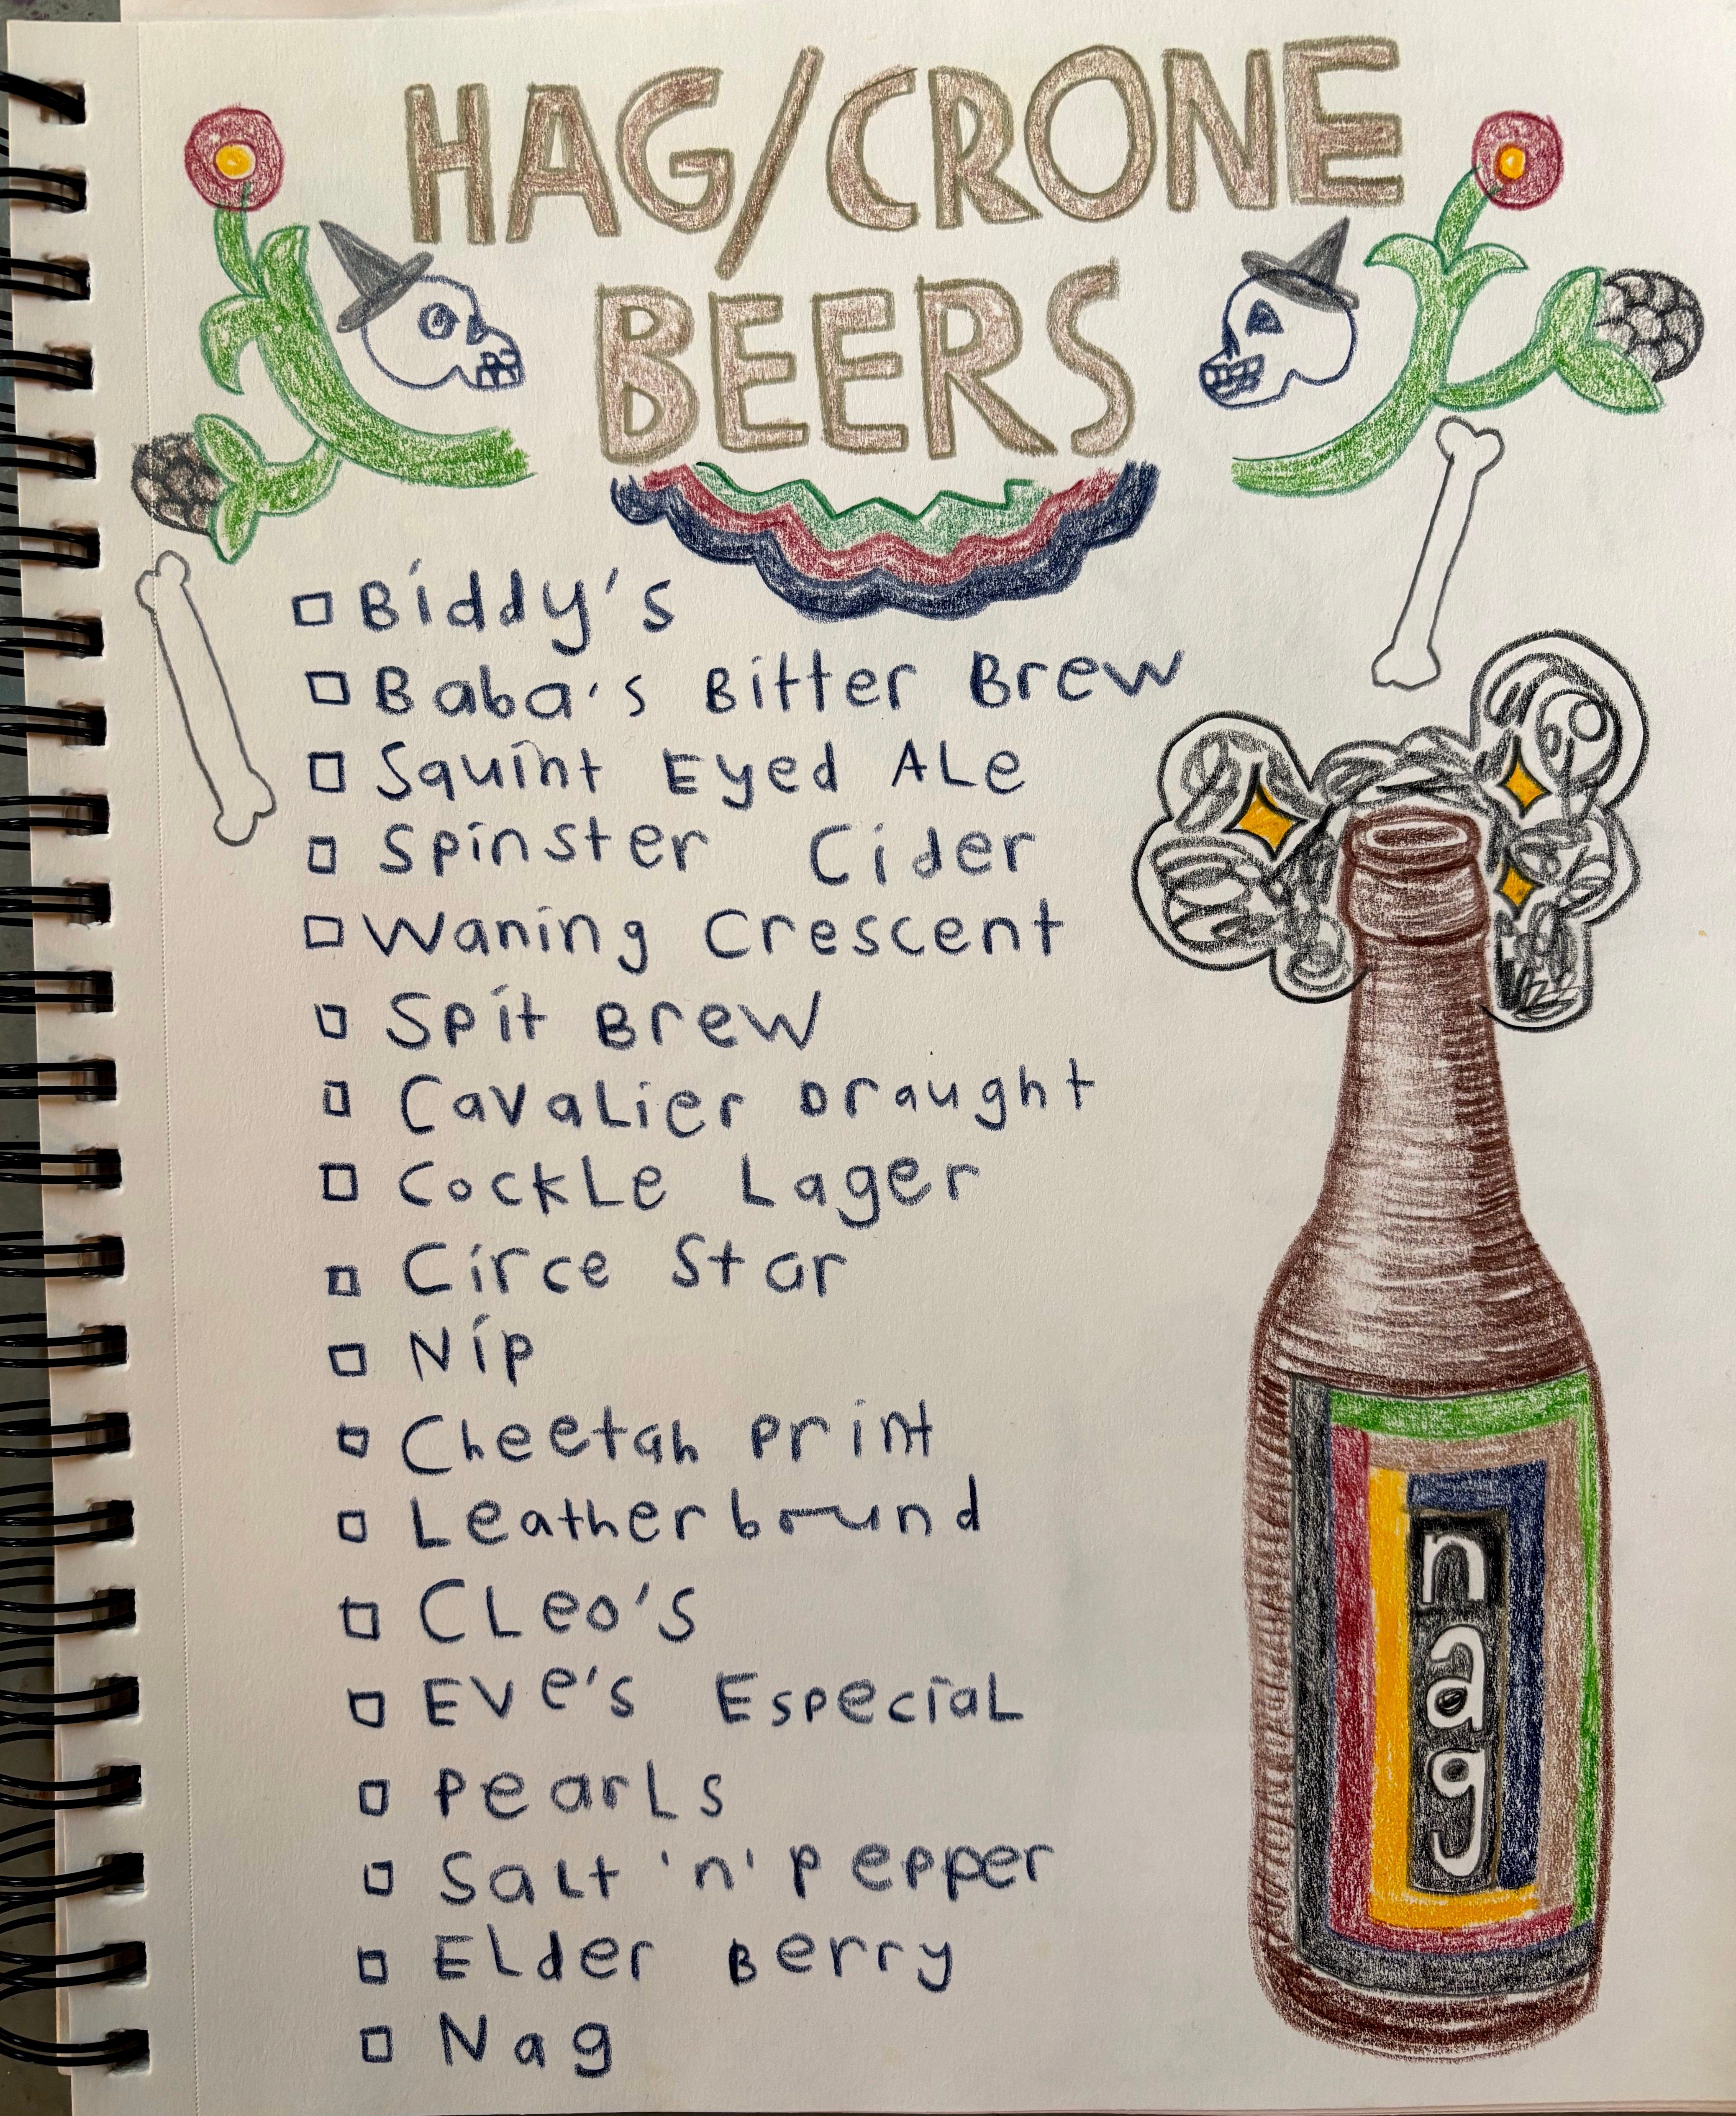 HAG/CRONE
BEERS
Biddy's
Baba's Bitter Brew
Squint Eyed Ale
Spinster Cider
Waning Crescent
Spit Brew
Cavalier Draught
Cockle Lager
Circe Star
Nip
Cheetah Print
Leatherbound
Cleo's
Eve's Especial
Pearls
Salt 'n' Pepper
Elder Berry
Nag
nag